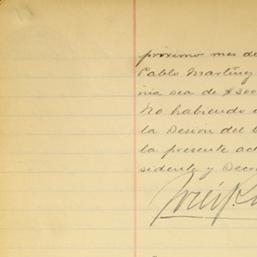 próximo mes de
Pablo Martínez
nia sea de $300
No habiendo
la Sesión del
la presente ac
sidente y Secre